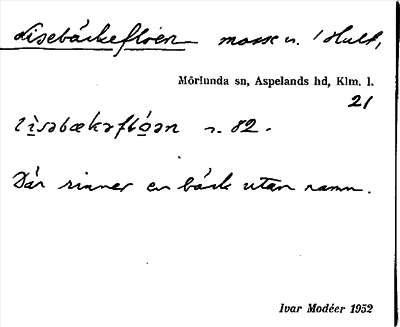 Lisebäckeflöen mosse n. /Hult,
Mörlunda sn, Aspelands hd, Klm. l.
21
lìsəbækəflǿən s. 82.
Där rinner en bäck utan namn.
Ivar Modéer 1952